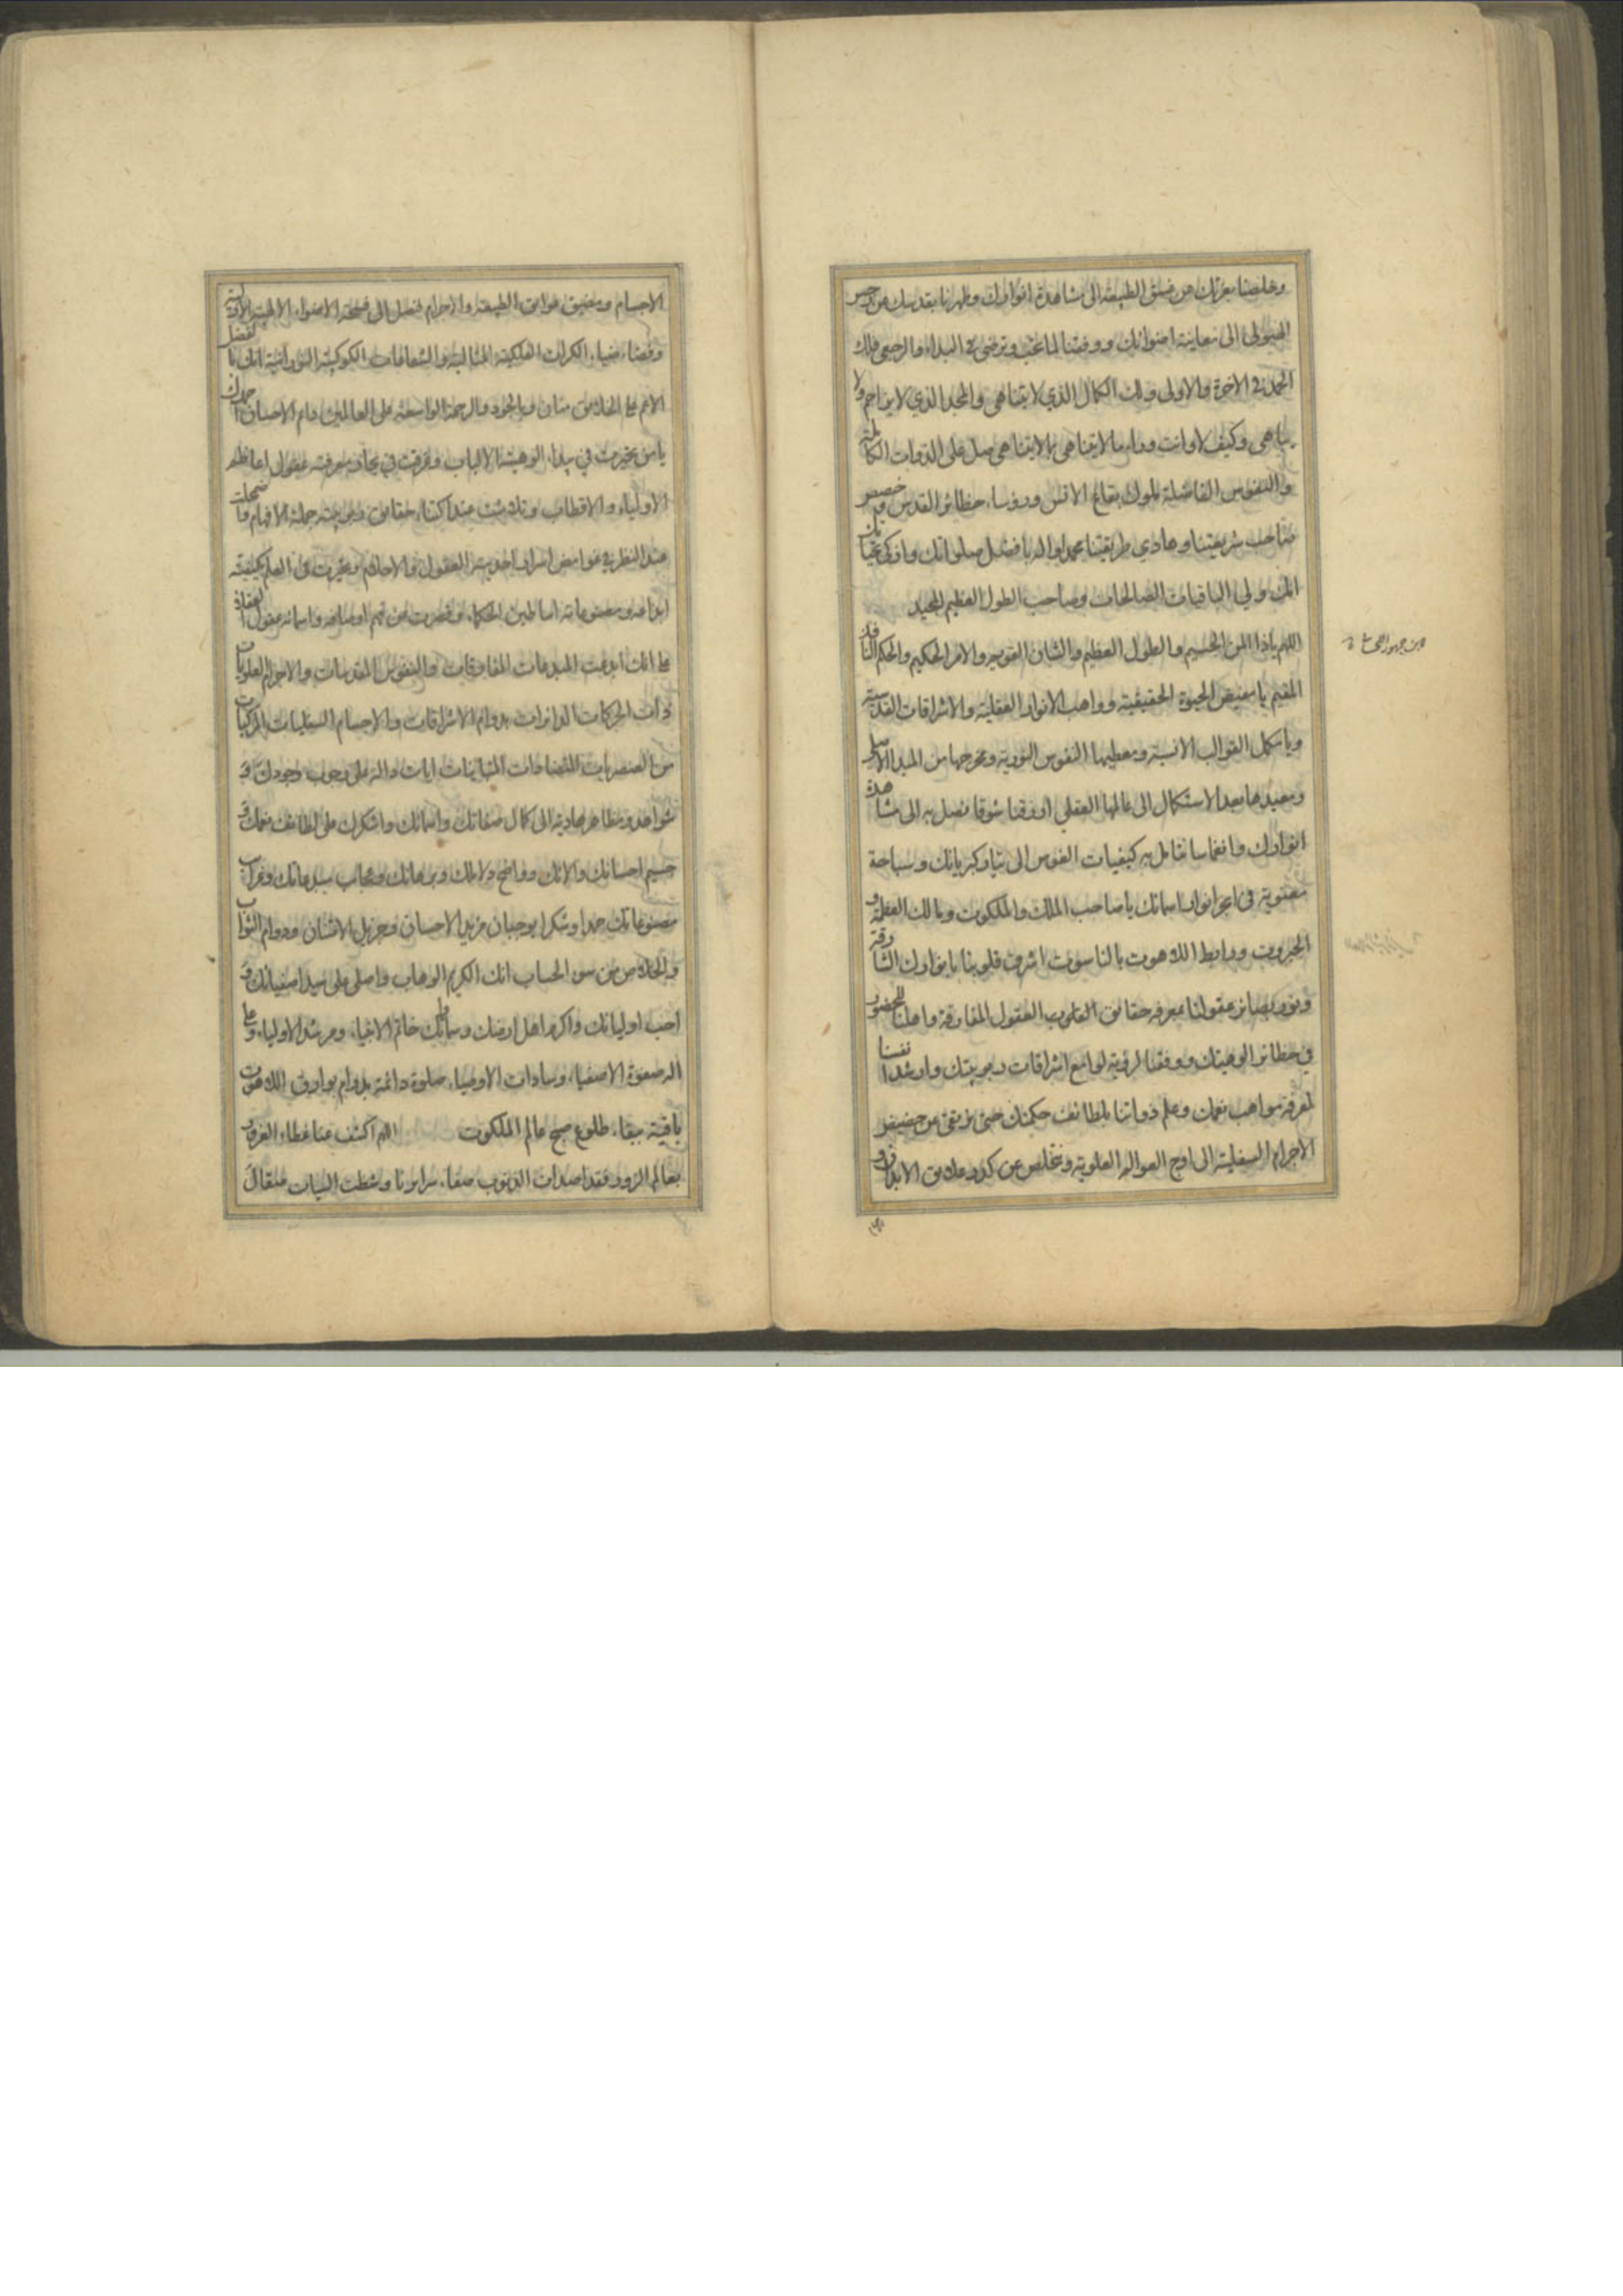 وخلصنا بعزتك من غسق الطبيعة الى مشاهدة انوارك وطهرنا بقدسك من رجس
الهيولى الى معاينة اضوائك ووفقنا لما تحب وترضى في المبداء والرجعى فلك
الحمد في الاخرة والاولى ولك الكمال الذي لا يتناهى والمجد الذي لا يزاحم ولا
يباهى وكيف لا وانت وراء ما لا يتناهى بما لا يتناهى صل على الذوات الكاملة
والنفوس الفاضلة ملوك بقاع الانس ورؤساء حظائر القدس وخصص
صاحب شريعتنا وهادي طريقتنا محمدا واله بافضل صلواتك وازكى تحياتك
انك ولي الباقيات الصالحات وصاحب الطول العظيم المجيد
اللهم ياذا المن الجسيم والطول العظيم والشان القويم والامر الحكيم والحكم النافذ
المقيم يا مفيض الحيوة الحقيقية وواهب الانوار العقلية والاشراقات القدسية
ويا مكمل القوالب الانسية ومعطيها النفوس النورية ومخرجها من المبدا الاصلي
ومعيدها بعد الاستكمال الى عالمها العقلي ارزقنا شوقا نصل به الى مشاهدة
انوارك وانغماسا نقابل به كيفيات النفوس الى كبريائك وسباحة
معنوية في ابحر انوار اسمائك يا صاحب الملك والملكوت ويا لك العظمة و
الجبروت ورابط اللاهوت بالناسوت اشرف قلوبنا بانوارك الشارقة
ونور بصائر عقولنا بمعرفة حقايق العقول المفارقة واهلنا للحضور
في حظائر الوهيتك ووفقنا لرؤية لوامع اشراقات ربوبيتك وارشد انفسنا
لمعرفة مواهب نعمك وعلم ذواتنا لطائف حكمتك حتى نرتقي من حضيض
الاجرام السفلية الى اوج العوالم العلوية ونتخلص من كدر علايق الابدان و
الاجسام ومضيق عوايق الطبيعة والاجرام فنصل الى فسحة الاضواء الالهية
وفضاء ضياء الكرات الفلكية المثالية والشعاعات الكوكبية النورانية انك
الاتم على الخلايق منان والجود والرحمة الواسعة على العالمين دايم الاحسان
يا من تحيرت في بيداء الوهيته الالباب وغرقت في بحار معرفته عقول اعاظم
الاولياء والاقطاب وتلاشت عند اكتناه حقايق ربوبيته جملة الافهام
عند النظر في غوامض اسرار احديته العقول والاحلام وعجزت عن العلم بكيفية
ابداعه ومصنوعاته اساطين الحكماء وقصرت عن فهم اوصافه واسمائه عقول
على انك ابدعت المبدعات المفارقات والنفوس المقدسات والاجرام العلويات
ذات الحركات الدائرات بدوام الاشراقات والاجسام السفليات المركبات
من العنصريات المتضادات المتباينات ايات دالة على وجوب وجودك و
شواهد ومظاهر هادية الى كمال صفاتك واسمائك واشكرك على لطائف نعمك و
جسيم احسانك والائك وواضح دلائلك وبرهانك وعجائب مبدعاتك وغرائب
مصنوعاتك حمدا وشكرا يوجبان مزيد الاحسان وجزيل الامتنان ودوام الثواب
والخلاص من سوء الحساب انك الكريم الوهاب واصلي على سيد اصفيائك و
احب اوليائك واكرم اهل ارضك وسمائك خاتم الانبياء ومرشد الاولياء وعلى
اله صفوة الاصفياء وسادات الاوصياء صلوة دائمة بدوام بوارق اللاهوت
باقية ببقاء طلوع صبح عالم الملكوت اللهم اكشف عنا غطاء الغرور
بعالم الزور فقد اصدات الذنوب صفاء سرائرنا